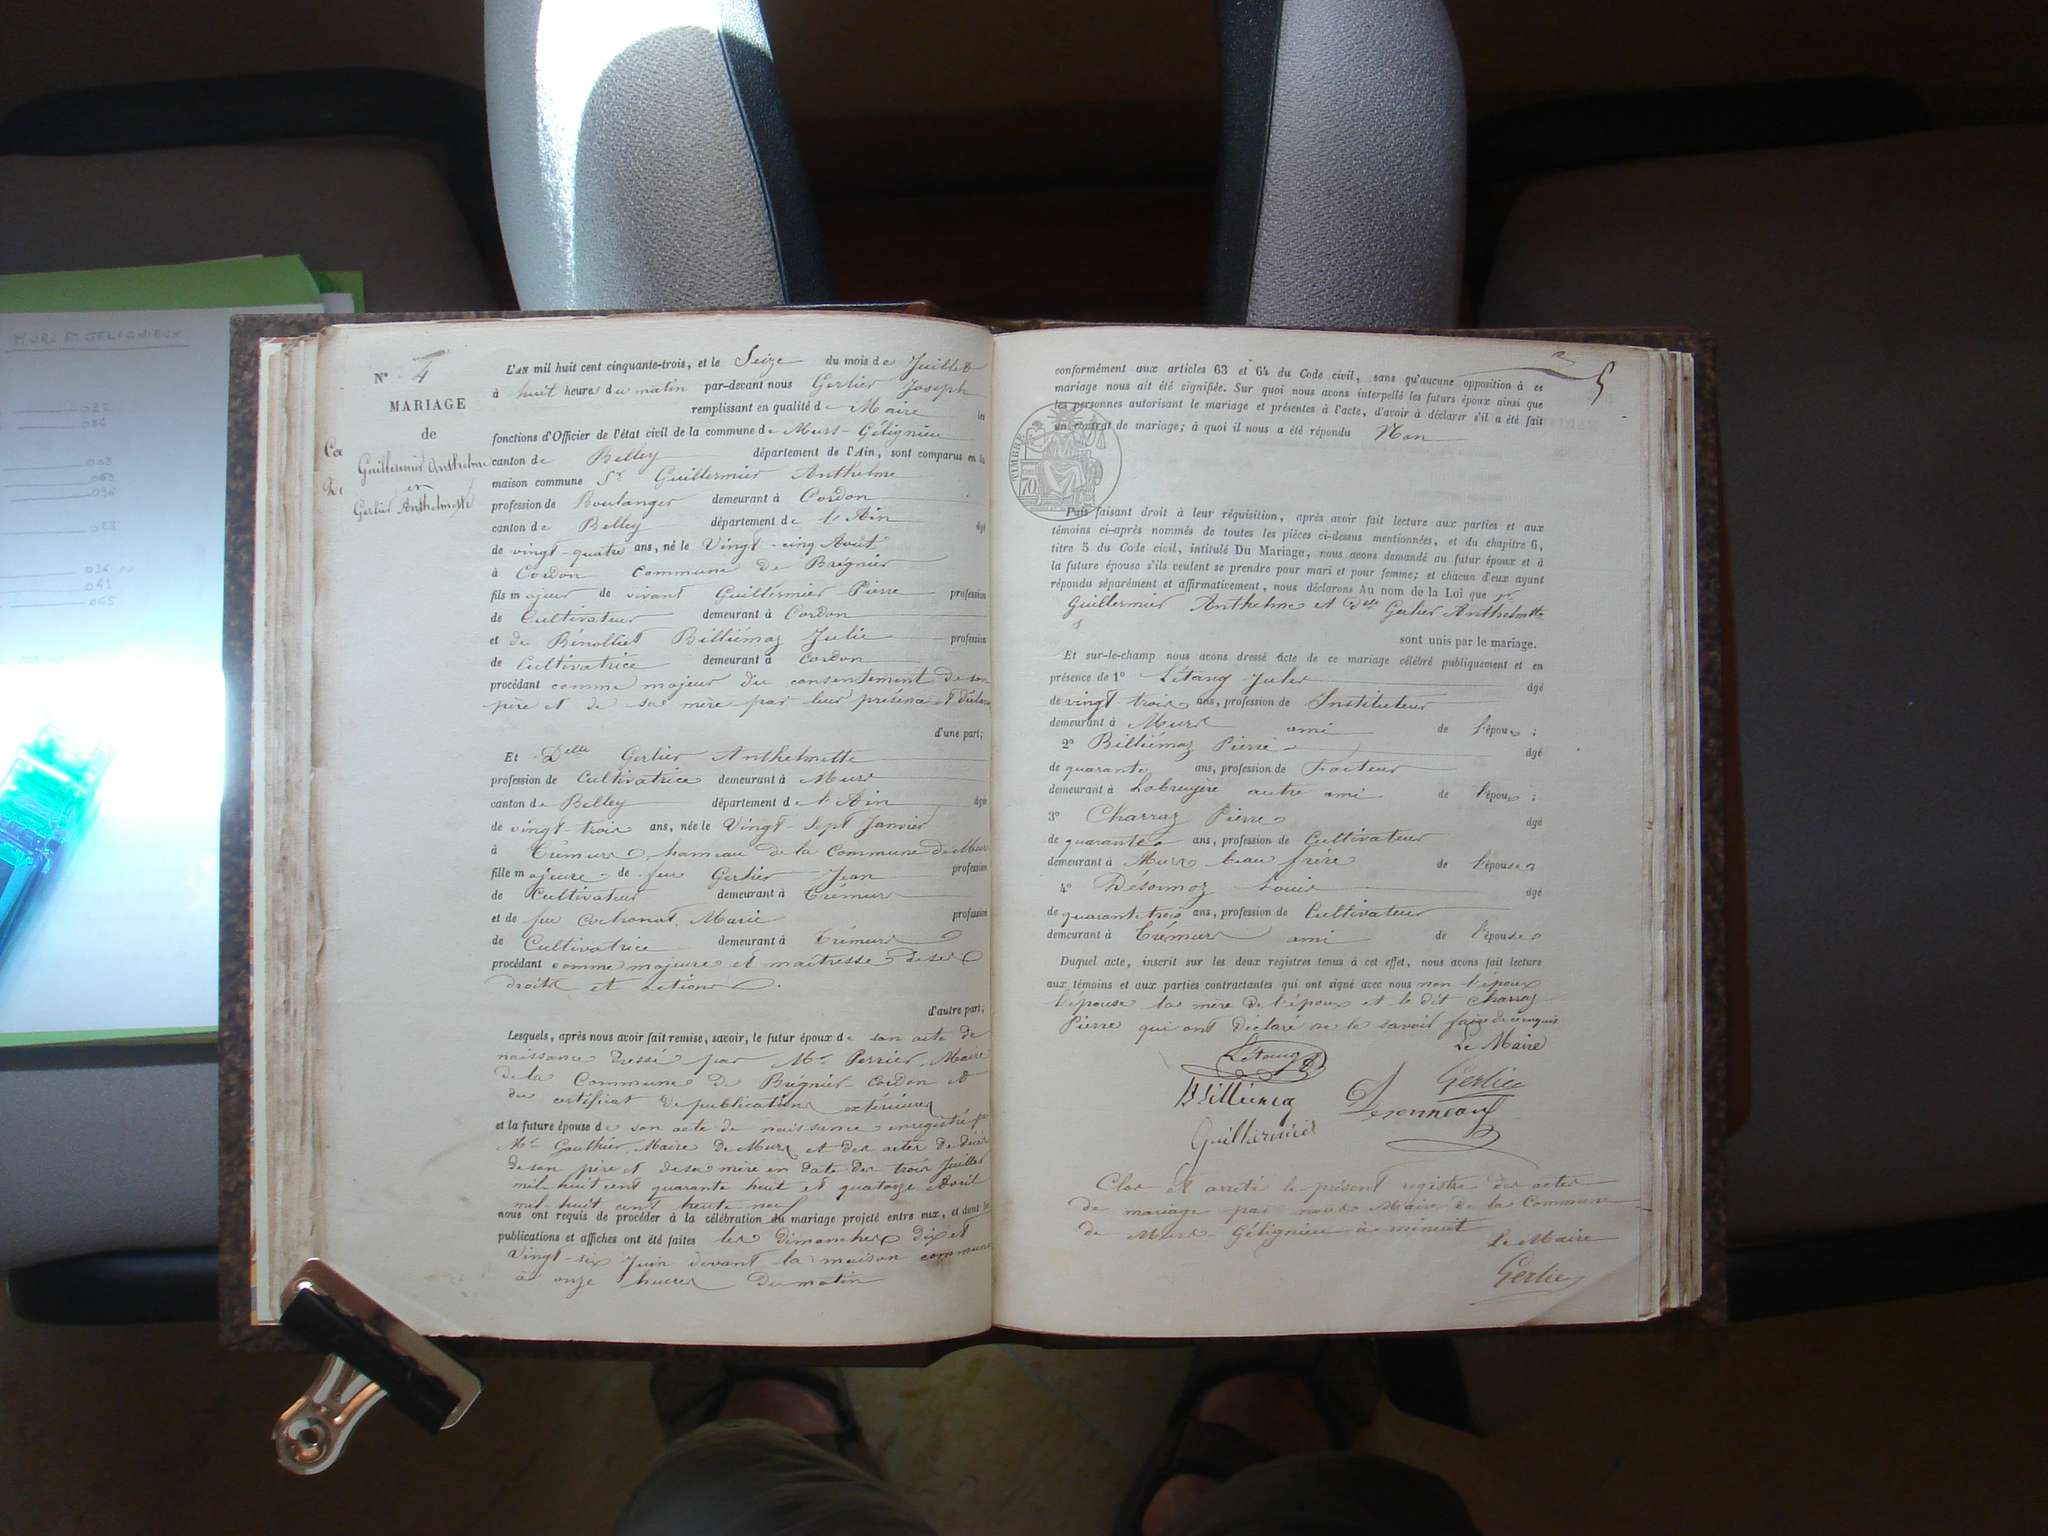 MURS ET GELIGNIEUX
N° 4
MARIAGE
de
Guillermier Anthelme
et
Gerlier Anthelmette
L'AN mil huit cent cinquante-trois, et le Seize du mois de Juillet
à huit heures du matin par-devant nous Gerlier Joseph
remplissant en qualité de Maire les
fonctions d'Officier de l'état civil de la commune de Murs-Gélignieu
canton de Belley département de l'Ain, sont comparus en la
maison commune Sr Guillermier Anthelme
profession de Boulanger demeurant à Cordon
canton de Belley département de l'Ain âgé
de vingt-quatre ans, né le Vingt-cinq Août
à Cordon commune de Brégnier
fils majeur de vivant Guillermier Pierre profession
de Cultivateur demeurant à Cordon
et de Bénolliet Billiémaz Julie profession
de Cultivatrice demeurant à Cordon
procédant comme majeur du consentement de son
père et de sa mère par leur présence et
d'une part;
Et Delle Gerlier Anthelmette
profession de Cultivatrice demeurant à Murs
canton de Belley département de l'Ain âgé
de vingt-trois ans, née le Vingt-Sept Janvier
à Crémurs, hameau de la Commune de Murs
fille majeure de feu Gerlier Jean profession
de Cultivateur demeurant à Crémurs
et de feu Cochonat Marie profession
de Cultivatrice demeurant à Crémurs
procédant comme majeure et maîtresse de ses
droits et actions.
d'autre part;
Lesquels, après nous avoir fait remise, savoir, le futur époux de son acte de
naissance dressé par Mr Perrier, Maire
de la Commune de Brégnier-Cordon et
du certificat de publications extérieures
et la future épouse de son acte de naissance enregistré par
Mr Gauthier, Maire de Murs et des actes de décès
de son père et de sa mère en date des trois Juillet
mil-huit cent quarante huit et quatorze Avril
mil-huit cent trente neuf
nous ont requis de procéder à la célébration du mariage projeté entre eux, et dont les
publications et affiches ont été faites les dimanches dix et
Vingt-six Juin devant la maison commune
à onze heures du matin
5
conformément aux articles 63 et 64 du Code civil, sans qu'aucune opposition à ce
mariage nous ait été signifiée. Sur quoi nous avons interpellé les futurs époux ainsi que
les personnes autorisant le mariage et présentes à l'acte, d'avoir à déclarer s'il a été fait
un contrat de mariage; à quoi il nous a été répondu Non
TIMBRE
70
Puis faisant droit à leur réquisition, après avoir fait lecture aux parties et aux
témoins ci-après nommés de toutes les pièces ci-dessus mentionnées, et du chapitre 6,
titre 5 du Code civil, intitulé Du Mariage, nous avons demandé au futur époux et à
la future épouse s'ils veulent se prendre pour mari et pour femme; et chacun d'eux ayant
répondu séparément et affirmativement, nous déclarons Au nom de la Loi que Sr
Guillermier Anthelme et Delle Gerlier Anthelmette
sont unis par le mariage.
Et sur-le-champ nous avons dressé acte de ce mariage célébré publiquement et en
présence de 1° Létang Jules âgé
de vingt trois ans, profession de Instituteur
demeurant à Murs ami de l'époux ;
2° Billiémaz Pierre âgé
de quarante ans, profession de facteur
demeurant à Labruyère autre ami de l'époux ;
3° Charraz Pierre âgé
de quarante ans, profession de Cultivateur
demeurant à Murs beau frère de l'épouse
4° Désormoz Louis âgé
de quarante trois ans, profession de Cultivateur
demeurant à Crémurs ami de l'épouse
Duquel acte, inscrit sur les deux registres tenus à cet effet, nous avons fait lecture
aux témoins et aux parties contractantes qui ont signé avec nous non l'époux
l'épouse la mère de l'époux et le dit Charraz
Pierre qui ont déclaré ne le savoir faire de ce requis
Le Maire
Létang
Gerlier
Billiémaz
Guillermier
Clos et arrêté le présent registre des actes
de mariage par nous Maire de la Commune
de Murs-Gélignieu à minuit
Le Maire
Gerlier